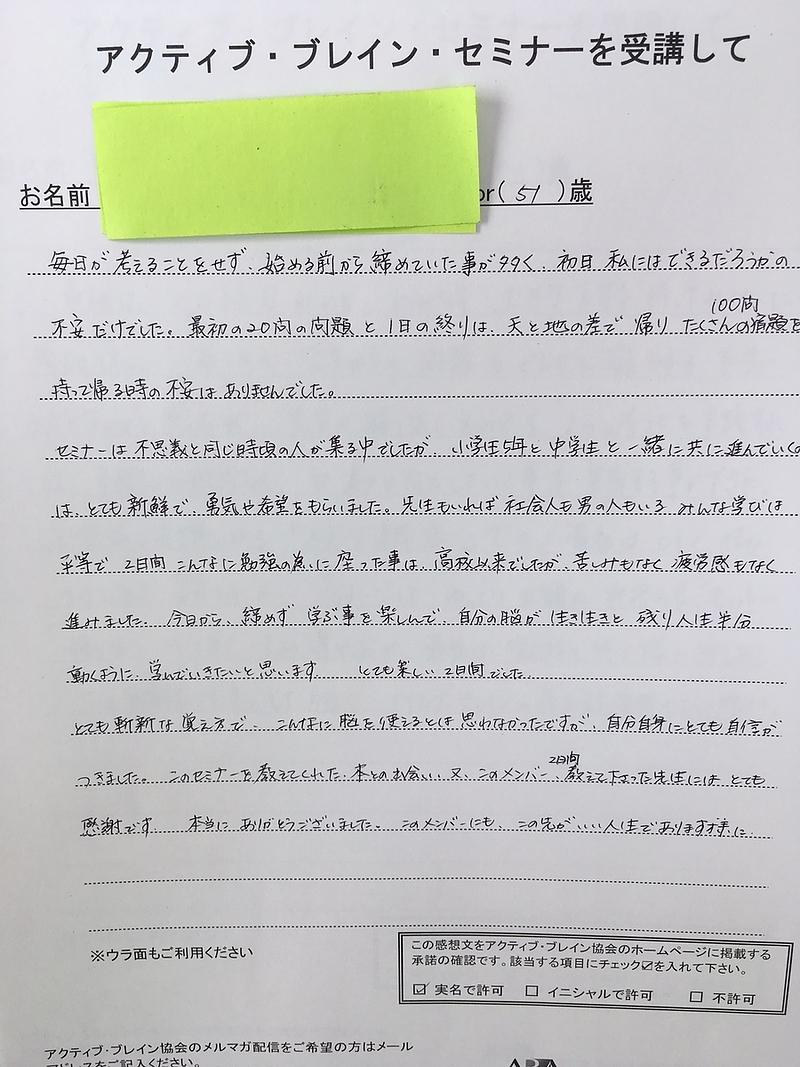 アクティブ・ブレイン・セミナーを受講して
お名前 or( 51 )歳
毎日が考えることをせず、始める前から締めていた事が多く、初日 私にはできるだろうかの
100問
不安だけでした。最初の20問の問題と1日の終りは、天と地の差で 帰り たくさんの宿題を
持って帰る時の不安はありませんでした。
セミナーは不思議と同じ時頃の人が集る中でしたが、小学生5年と中学生と一緒に共に進んでいくの
は、とても新鮮で、勇気や希望をもらいました。先生もいれば社会人も男の人もいる みんな学びは
平等で 2日間 こんなに勉強の為に座った事は、高校以来でしたが、苦しみもなく疲労感もなく
進みました。今日から、締めず 学ぶ事を楽しんで、自分の脳が 生き生きと 残り人生半分
動くように、学んでいきたいと思います とても楽しい2日間でした。
とても斬新な覚え方で、こんなに脳を使えるとは思わなかったですが、自分自身にとても自信が
2日間
つきました。このセミナーを教えてくれた本との出会い 又、このメンバー、教えて下さった先生には とても
感謝です 本当に ありがとうございました。このメンバーにも、この先がいい人生であります様に
※ウラ面もご利用ください
この感想文をアクティブ・ブレイン協会のホームページに掲載する
承諾の確認です。該当する項目にチェック☑を入れて下さい。
☑ 実名で許可 □ イニシャルで許可 □ 不許可
アクティブ・ブレイン協会のメルマガ配信をご希望の方はメール
アドレスをご記入ください。